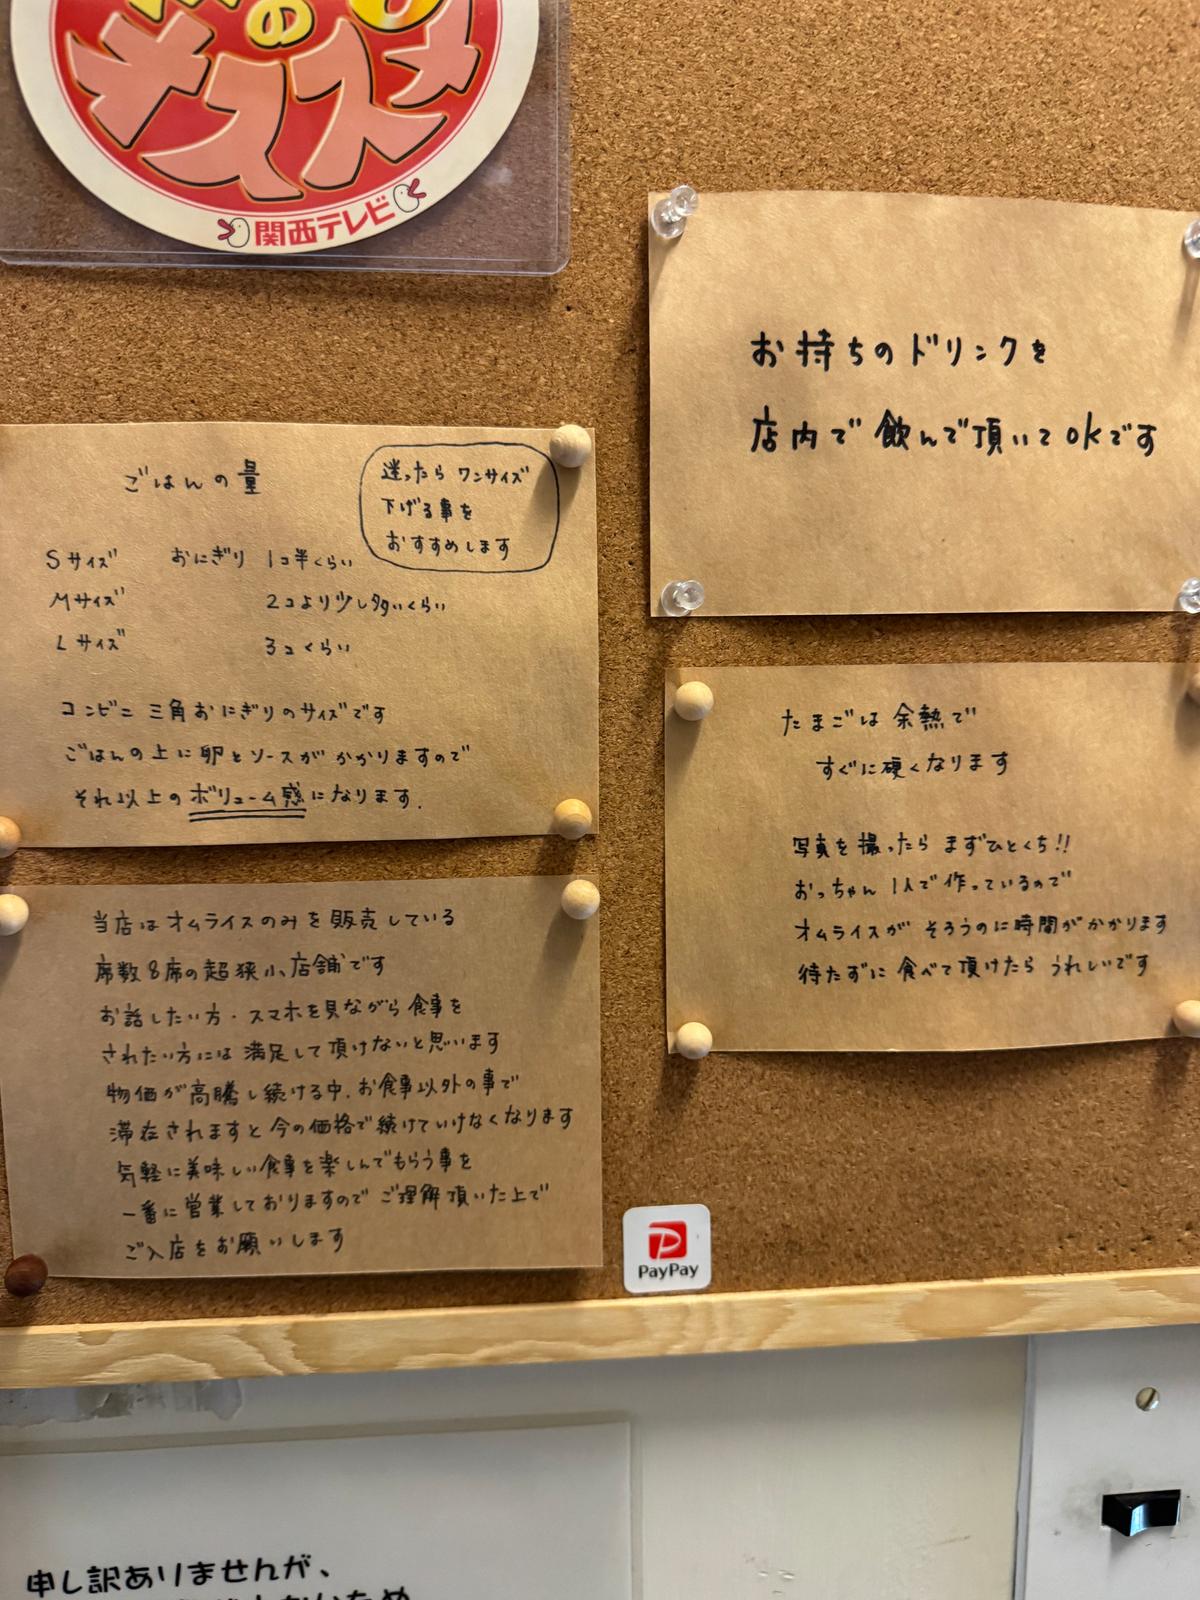 の
キススメ
関西テレビ
お持ちのドリンクを
店内で飲んで頂いてOKです
ごはんの量
迷ったらワンサイズ
下げる事を
おすすめします
Sサイズ おにぎり 1コ半くらい
Mサイズ 2コより少し多いくらい
Lサイズ 3コくらい
コンビニ三角おにぎりのサイズです
ごはんの上に卵とソースがかかりますので
それ以上のボリューム感になります.
たまごは余熱で
すぐに硬くなります
写真を撮ったらまずひとくち!!
おっちゃん1人で作っているので
オムライスがそろうのに時間がかかります
待たずに食べて頂けたらうれしいです
当店はオムライスのみを販売している
席数8席の超狭小店舗です
お話したい方・スマホを見ながら食事を
されたい方には満足して頂けないと思います
物価が高騰し続ける中、お食事以外の事で
滞在されますと今の価格で続けていけなくなります
気軽に美味しい食事を楽しんでもらう事を
一番に営業しておりますのでご理解頂いた上で
ご入店をお願いします
PayPay
申し訳ありませんが、